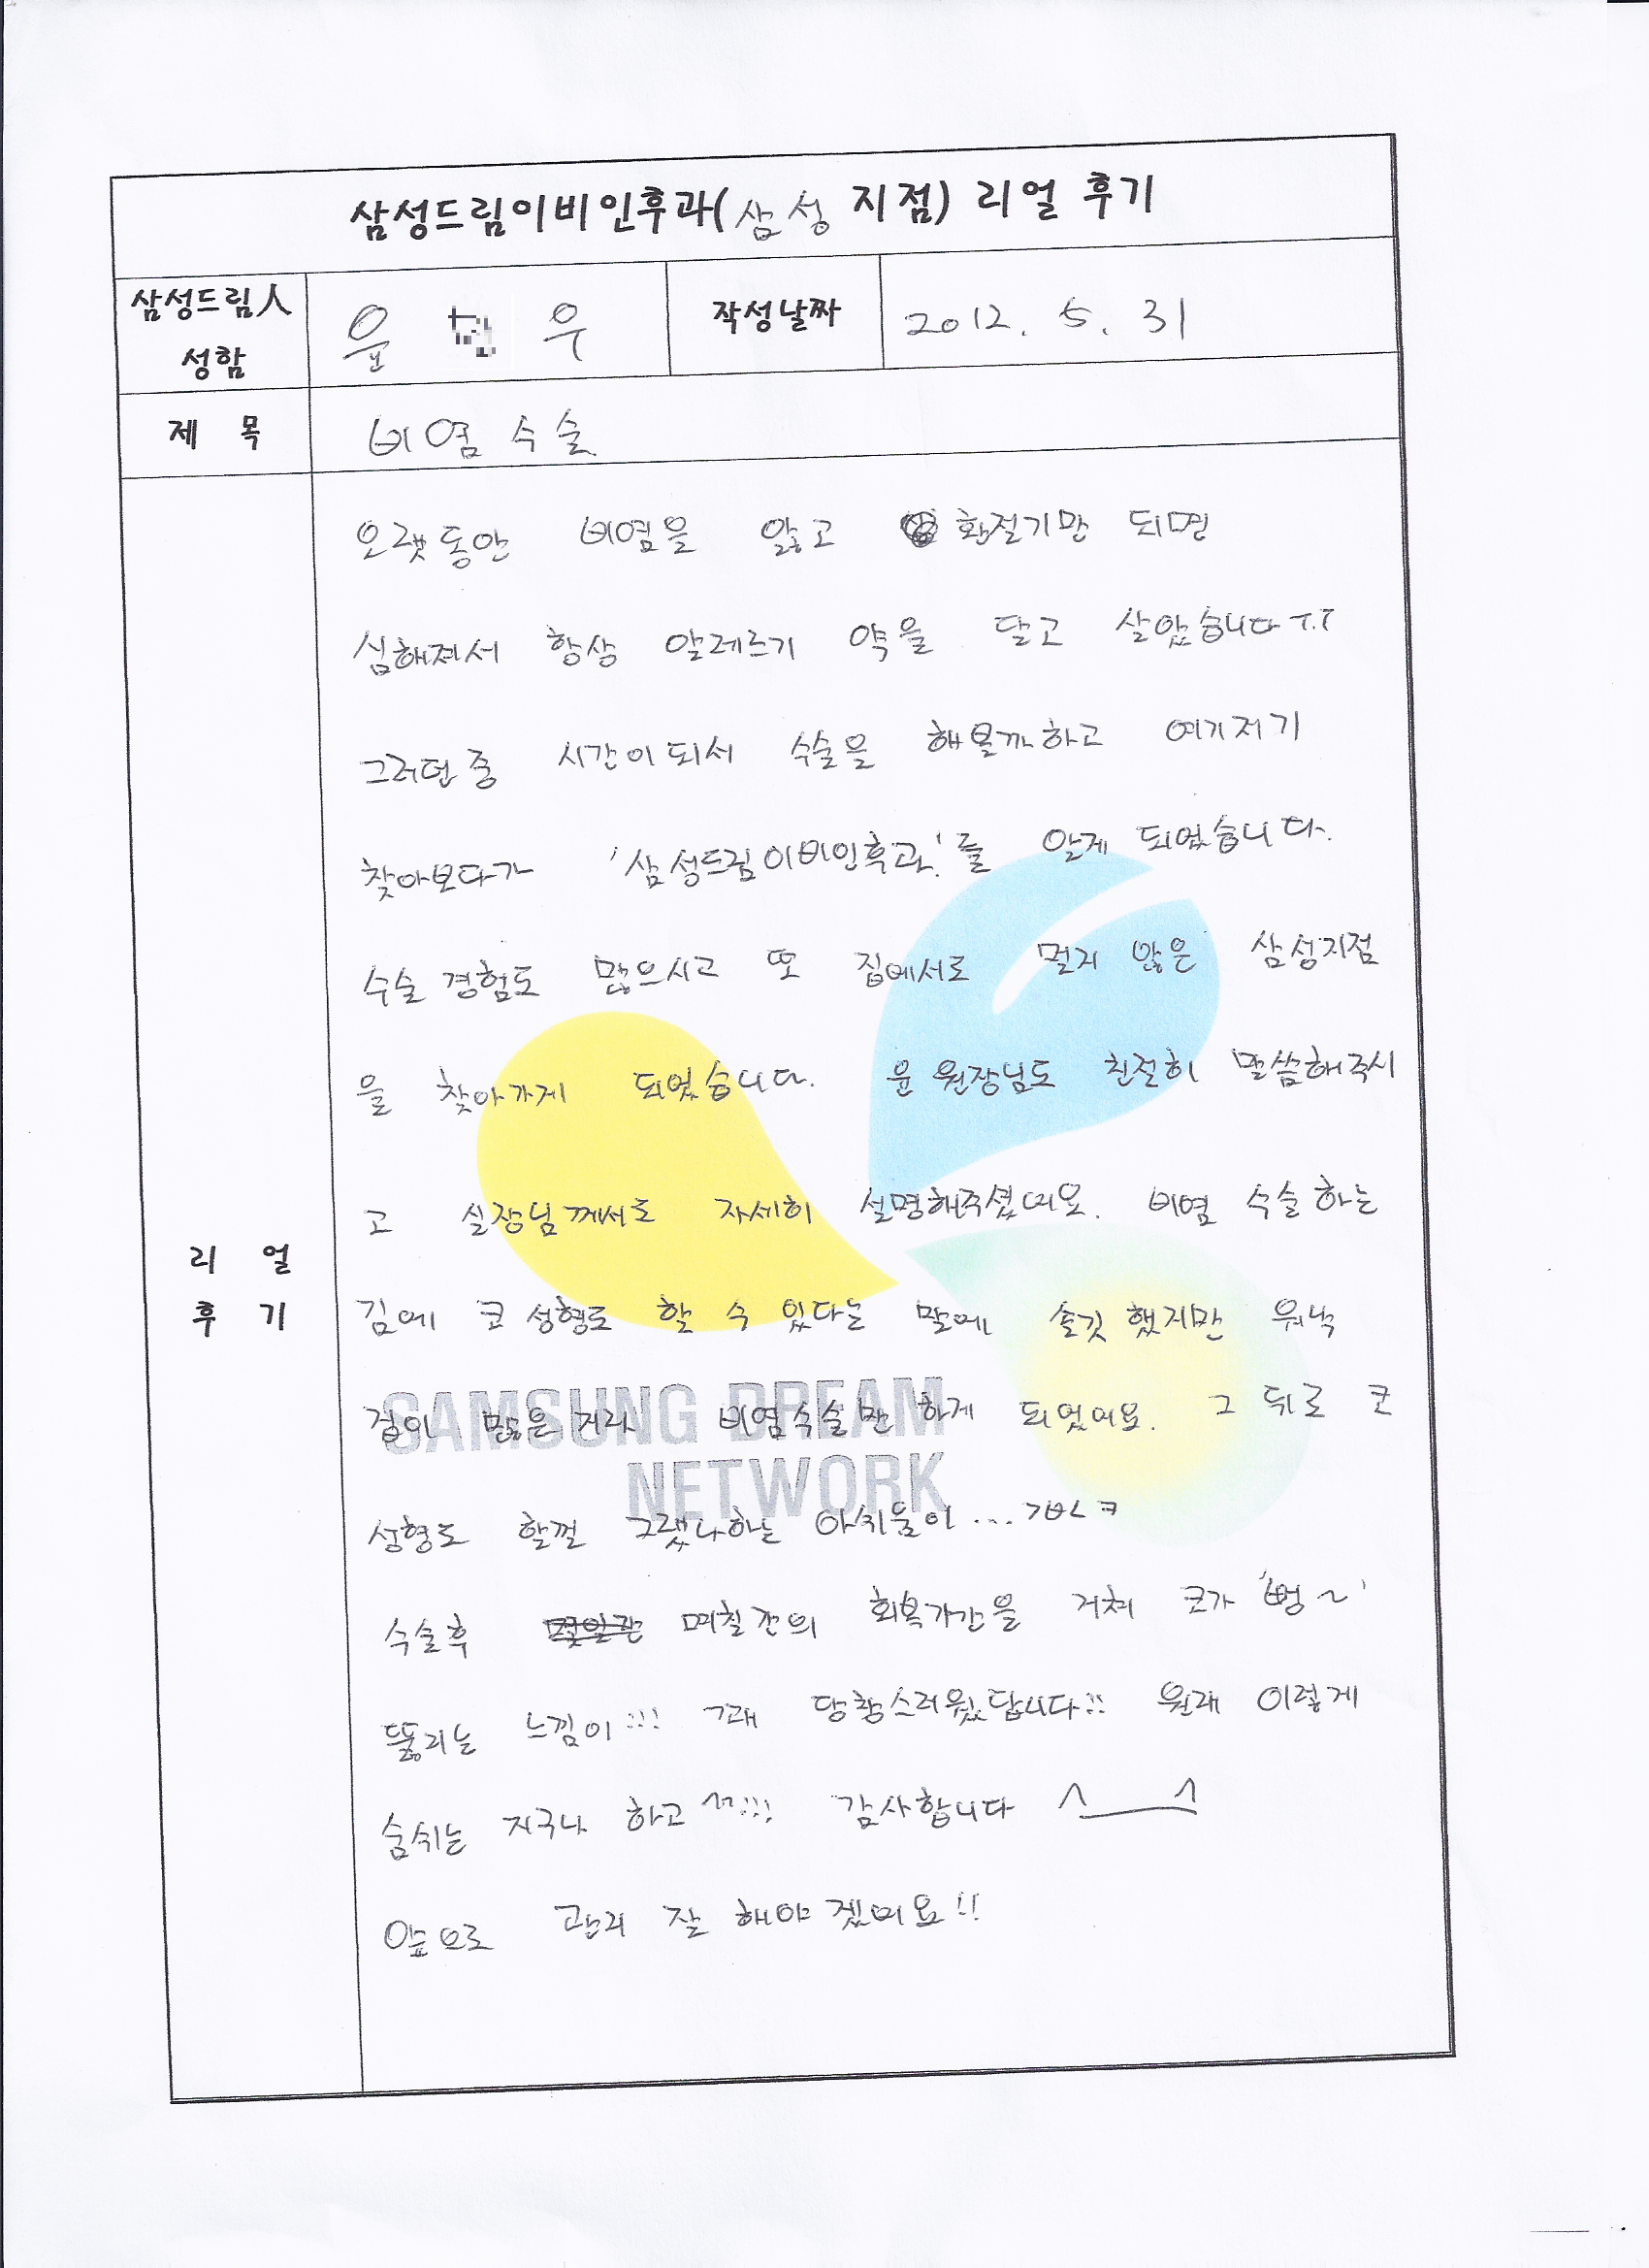 삼성드림이비인후과(삼성 지점) 리얼 후기
삼성드림人 성함
윤 우
작성날짜
2012. 5. 31
제 목
비염 수술
리 얼 후 기
오랫동안 비염을 앓고 환절기만 되면
심해져서 항상 알레르기 약을 달고 살았습니다 T.T
그러던 중 시간이되서 수술을 해볼까하고 여기저기
찾아보다가 '삼성드림이비인후과.'를 알게 되었습니다.
수술 경험도 많으시고 또 집에서도 멀지 않은 삼성지점
을 찾아가게 되었습니다. 윤 원장님도 친절히 말씀해주시
고 실장님께서도 자세히 설명해주셨어요. 비염 수술 하는
김에 코 성형도 할 수 있다는 말에 솔깃 했지만 워낙
겁이 많은지라 비염수술만 하게 되었어요. 그 뒤로 코
성형도 할껄 그랬나하는 아쉬움이...
수술후 며칠간의 회복기간을 거쳐 코가 '뻥~'
뚫리는 느낌이!!! 그래 당황스러웠답니다!! 원래 이렇게
숨쉬는 지구나 하고 ~!!! 감사합니다 ^____^
앞으로 관리 잘 해야 겠어요!!
SAMSUNG DREAM
NETWORK